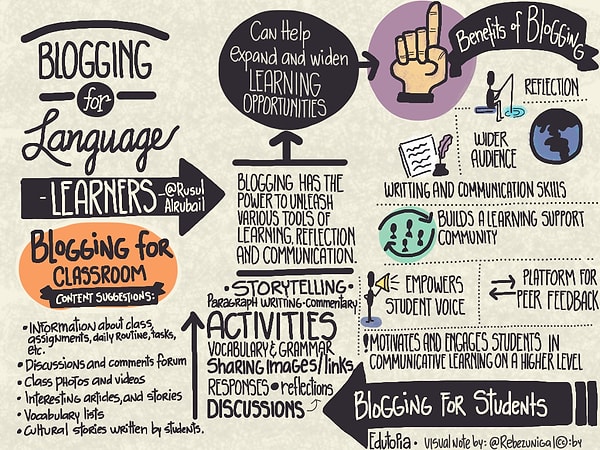 BLOGGING
for
Language
- LEARNERS -
@Rusul
Alrubail
BLOGGING FOR
CLASSROOM
CONTENT SUGGESTIONS:
• INFORMATION ABOUT CLASS,
assignments, daily Routine, tasks,
etc.
• Discussions and comments forum
• Class photos and videos
• Interesting articles, and stories
• Vocabulary lists
• Cultural stories written by students.
Can Help
expand and widen
LEARNING
OPPORTUNITIES
BLOGGING HAS THE
POWER TO UNLEASH
VARIOUS TOOLS OF
LEARNING, REFLECTION
AND COMMUNICATION.
• STORYTELLING •
Paragraph WRITING • commentary
ACTIVITIES
VOCABULARY & GRAMMAR
Sharing Images/links
RESPONSES • reflections
DISCUSSIONS
Benefits of Blogging
REFLECTION
WIDER
AUDIENCE
WRITING AND COMMUNICATION SKILLS
BUILDS A LEARNING SUPPORT
COMMUNITY
EMPOWERS
STUDENT VOICE
PLATFORM FOR
PEER FEEDBACK
! MOTIVATES AND ENGAGES STUDENTS IN
COMMUNICATIVE LEARNING ON A HIGHER LEVEL
BLOGGING FOR STUDENTS
Edutopia • VISUAL NOTE by: @Rebezuniga | (cc):by